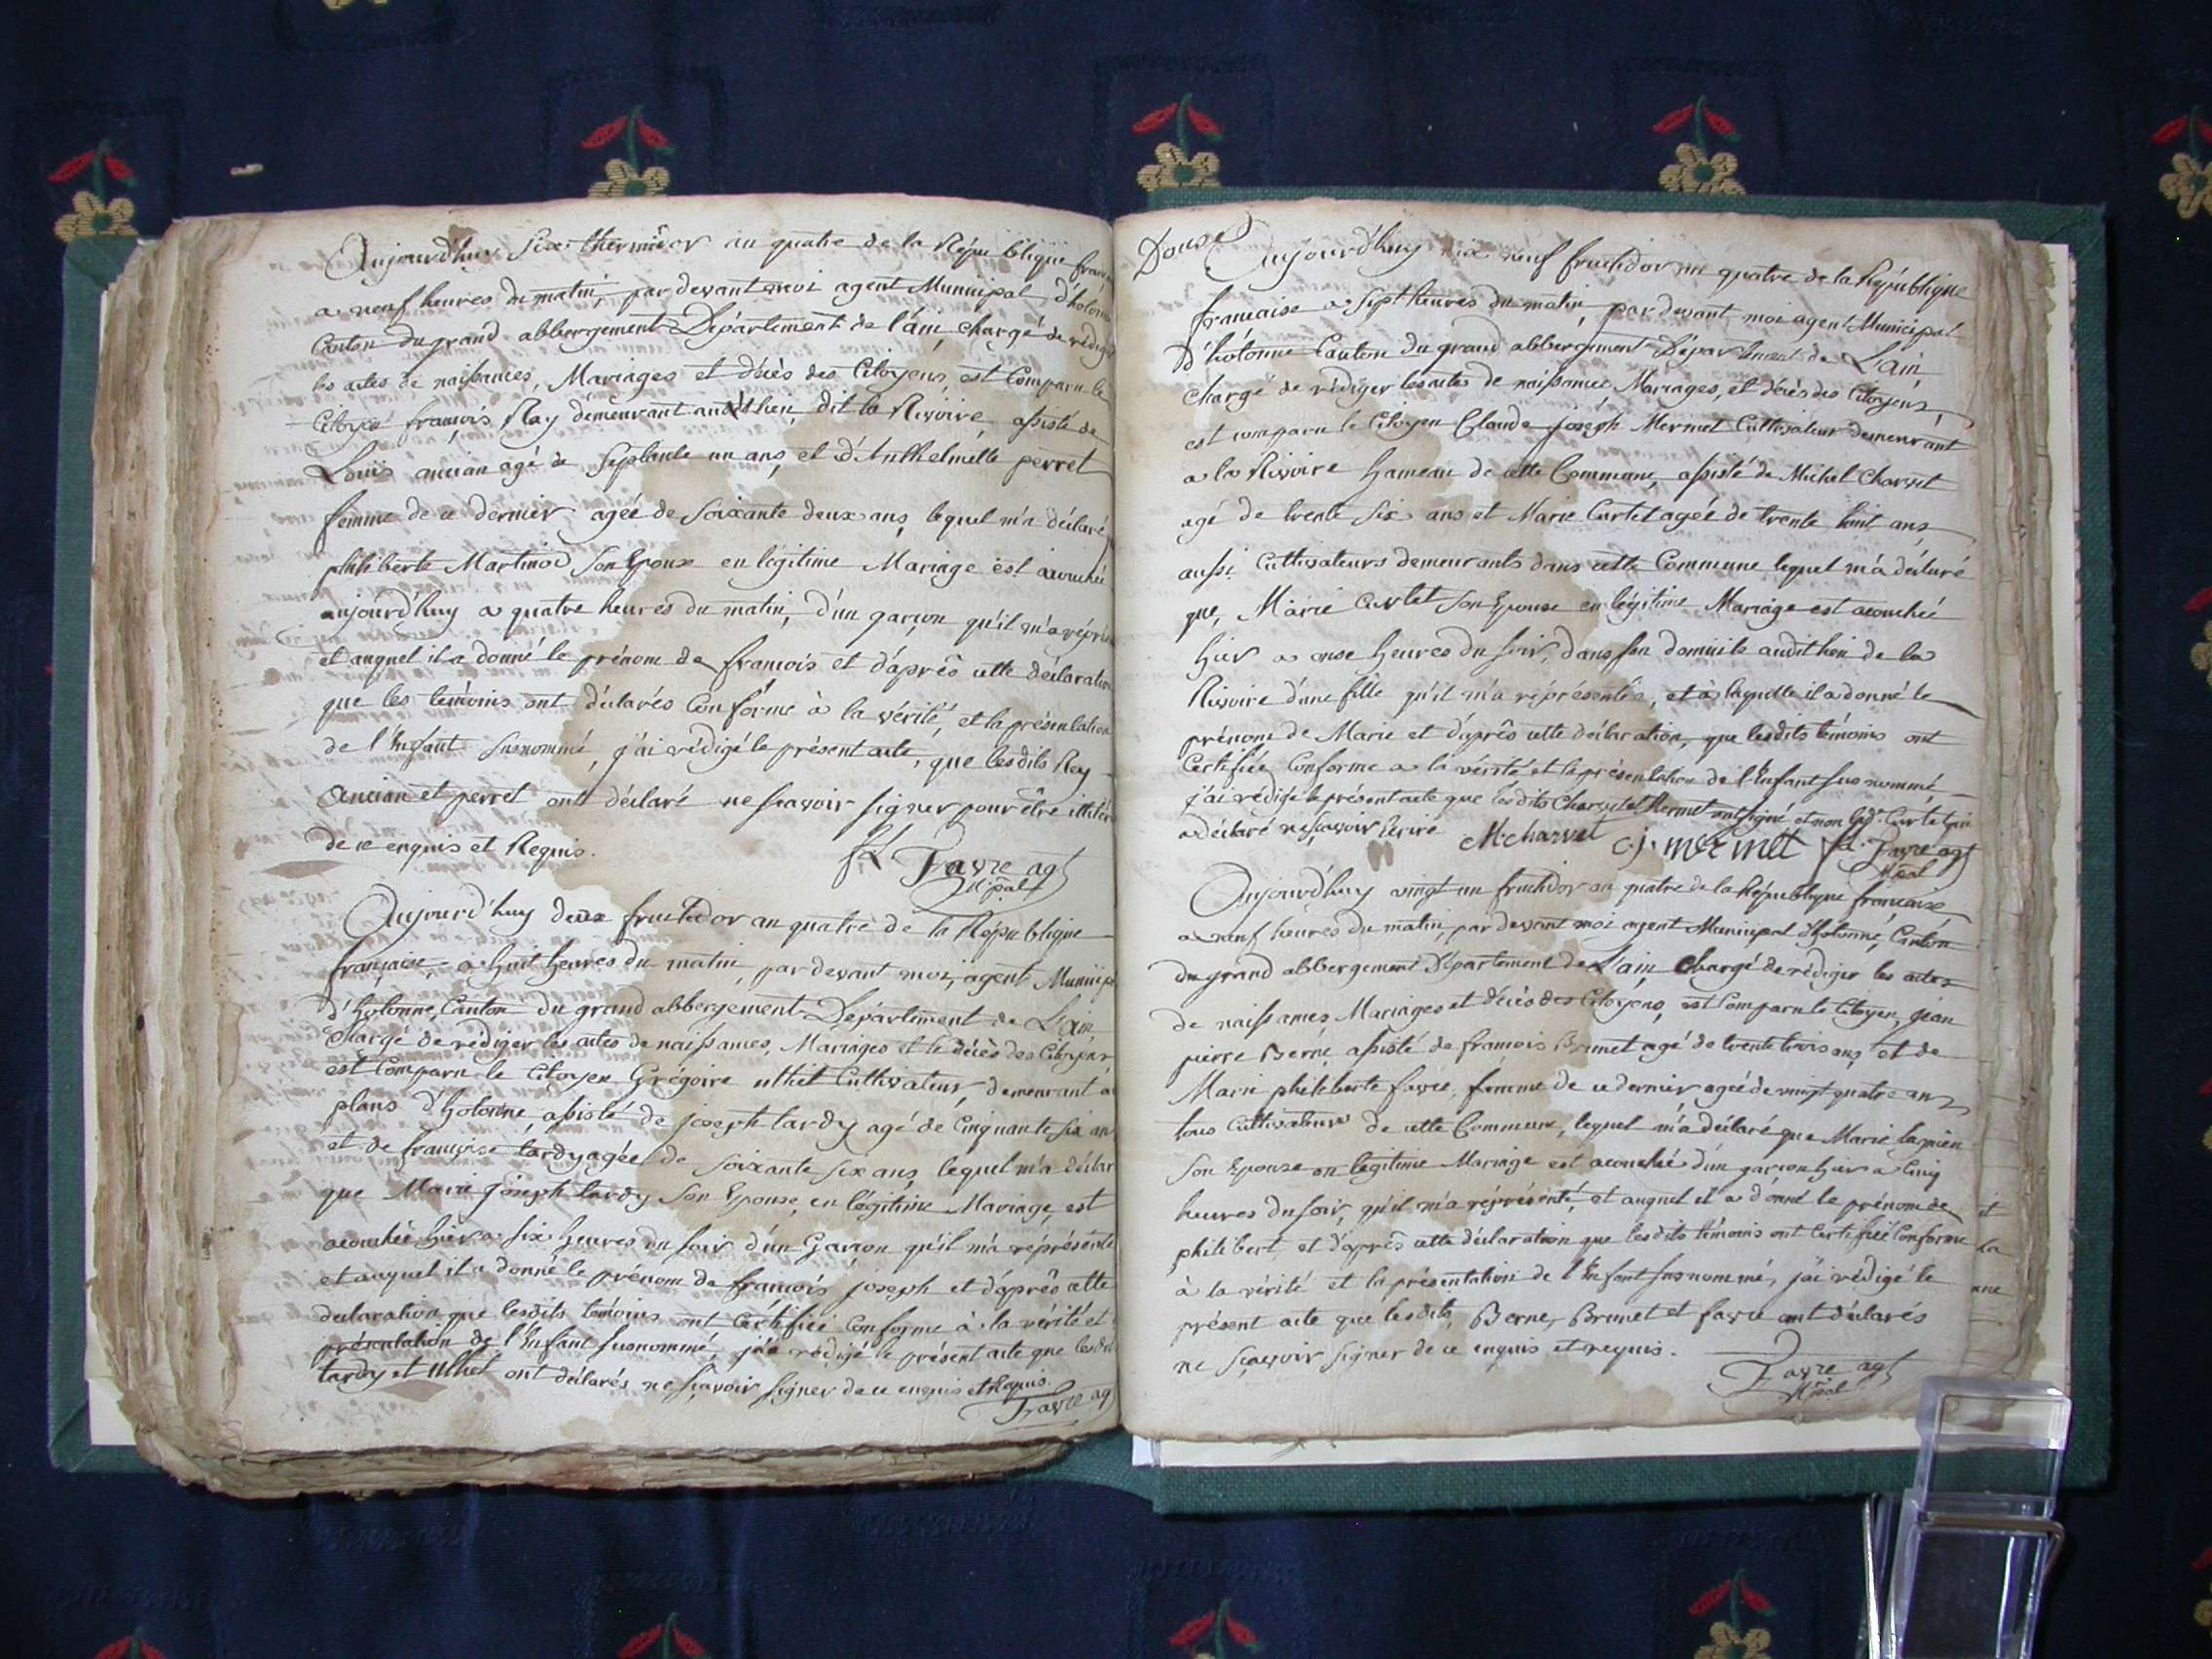 Aujourd'huy six thermidor an quatre de la République
a neuf heures du matin, par devant moi agent Municipal
Canton du grand abbergement Département de l'ain, chargé de
les actes de naissances, Mariages et décès des Citoyens, est Comparu le
Citoyen françois Ray demeurant audit lieu, dit la Rivoire, assisté de
Louis ancian agé de septante un ans, et d'Anthelmette perret
femme de ce dernier agée de soixante deux ans, lequel m'a déclaré
philiberte Martinod son Epouse en légitime Mariage est acouchée
aujourd'huy a quatre heures du matin, d'un garçon qu'il m'a
et auquel il a donné le prénom de françois et d'après cette déclaration
que les temoins ont déclarés Conforme à la vérité, et la présentation
de l'Enfant susnommé, j'ai rédigé le présent acte, que lesdits Rey
Ancian et perret ont déclaré ne scavoir signer pour être
de ce enquis et Requis.
Favre agt
Mpal
Aujourd'huy deux fructidor an quatre de la République
française à huit heures du matin, par devant moi, agent
d'hotonne, Canton du grand abbergement Département de L'ain
Chargé de rédiger les actes de naissances, Mariages et le décès des Citoyens
est Comparu le Citoyen Grégoire uthiet Cultivateur, demeurant
plans d'hotonne, assisté de joseph tardy agé de Cinquante six
et de françoise tardy agée de soixante six ans, lequel m'a
que Marie joseph tardy son Epouse, en légitime Mariage, est
acouchée hier a six heures du soir d'un Garçon qu'il m'a réprésenté
et auquel il a donné le prénom de françois joseph et d'après cette
déclaration que lesdits temoins ont Certifiée Conforme à la vérité et
présentation de l'Enfant susnommé, j'ai rédigé le présent acte que
tardy et uthiet ont déclarés ne scavoir signer de ce enquis et Requis.
Favre ag
Douse
Aujourd'huy dix neuf fructidor an quatre de la République
francaise a sept heures du matin, par devant moi agent Municipal
d'hotonne Canton du grand abbergement Département de L'ain,
chargé de rédiger les actes de naissances Mariages, et décès des Citoyens,
est comparu le Citoyen Claude joseph Mermet Cultivateur demeurant
a la Rivoire hameau de cette Commune, assisté de Michel Charvet
agé de trente six ans et Marie Curtet agée de trente huit ans
aussi Cultivateurs demeurants dans cette Commune lequel m'a déclaré
que, Marie Curtet son Epouse en légitime Mariage est acouchée
hier a onse heures du soir, dans son domicile audit lieu de la
Rivoire d'une fille qu'il m'a réprésentée, et à laquelle il a donné le
prénom de Marie et d'après cette déclaration, que lesdits témoins ont
Certifiée Conforme a la vérité et la présentation de l'Enfant sus nommé
j'ai rédigé le présent acte que lesdits Charvet et Mermet ont signé et non Curtet qui
a déclaré ne scavoir Ecrire M. charvet c. j. mermet Favre agt
Mpal
Aujourd'huy vingt un fructidor an quatre de la République francaise
a neuf heures du matin, par devant moi agent Municipal d'hotonne, Canton
du grand abbergement Département de L'ain Chargé de rédiger les actes
de naissances Mariages et décès des Citoyens, est Comparu le Citoyen, jean
pierre Berne, assisté de francois Brunet agé de trente trois ans, et de
Marie philiberte favre, femme de ce dernier agée de vingt quatre ans
tous Cultivateurs de cette Commune, lequel m'a déclaré que Marie
son Epouse en légitime Mariage est acouchée d'un garcon hier a Cinq
heures du soir, qu'il m'a réprésenté, et auquel il a donné le prénom de
philibert et d'après cette déclaration que lesdits témoins ont Certifiée Conforme
à la vérité et la présentation de l'Enfant susnommé, j'ai rédigé le
présent acte que lesdits, Berne, Brunet et favre ont déclarés
ne scavoir signer de ce enquis et requis.
Favre agt
Mpal